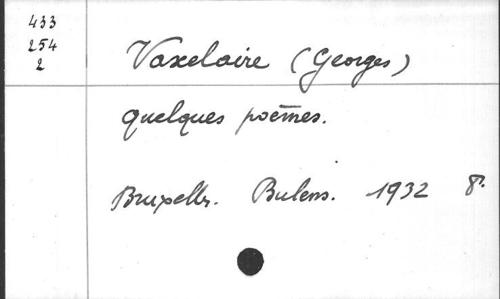 433
254
2
Vaxelaire (Georges)
quelques poëmes.
Bruxelles. Bulens. 1932 8°.